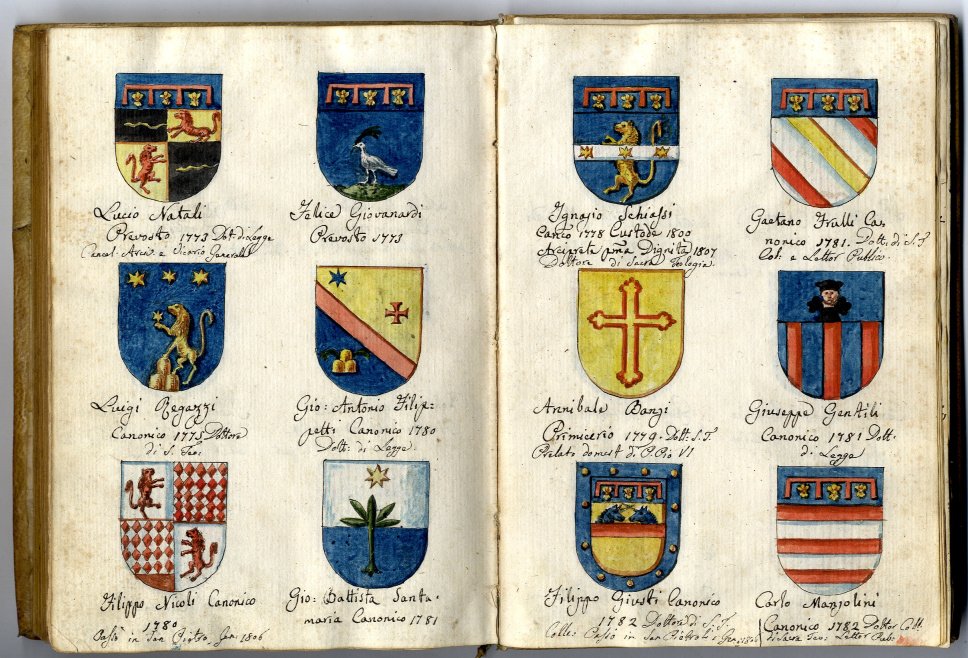 Lucio Natali
Prevosto 1773 Dott. di Legge
Cancel. Arciv. e Vicario Generale
Felice Giovanardi
Prevosto 1773
Luigi Regazzi
Canonico 1775 Dottore
di S. Teol.
Gio: Antonio Filip-
petti Canonico 1780
Dott. di Legge.
Filippo Nicoli Canonico
1780
Passò in San Pietro, Gen. 1806
Gio: Battista Santa-
maria Canonico 1781
Ignazio Schiassi
Canco 1778 Custode 1800
Arciprete pma Dignità 1807
Dottore di Sacra Teologia.
Gaetano Frulli Ca-
nonico 1781. Dott. di S. T.
Col. e Lettor Publico.
Annibale Banzi
Primicerio 1779. Dott. S. T.
Prelato domest. di P. Pio VI
Giuseppe Gentili
Canonico 1781 Dott.
di Legge
Filippo Giusti Canonico
1782 Dottore di S. T.
Colle. Passò in San Pietro
Carlo Manzolini
Canonico 1782 Dottor Coll.
di Sacra Teo. Lettor Pub.